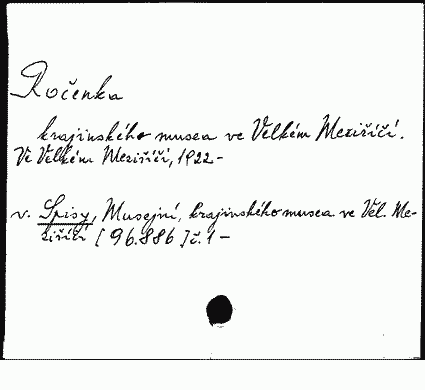 Ročenka
krajinského musea ve Velkém Meziříčí.
Ve Velkém Meziříčí, 1922-
v. Spisy, Musejní, krajinského musea ve Vel. Me-
ziříčí [96.886] č. 1-